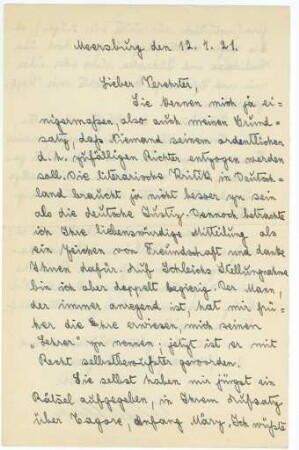 Meersburg den 12.4.21.
Lieber Verehrter,
Sie kennen mich ja ei-
nigermaßen, also auch meinen Grund-
satz, daß Niemand seinem ordentlichen
d. h. zufälligen Richter entzogen werden
soll. Die literarische Kritik in Deutsch-
land braucht ja nicht besser zu sein
als die deutsche Justiz. Dennoch betrachte
ich Ihre liebenswürdige Mitteilung als
ein Zeichen von Freundschaft und danke
Ihnen dafür. Auf Schleichs Stellungnahme
bin ich aber doppelt begierig. Der Mann,
der immer anregend ist, hat mir frü-
her die Ehre erwiesen, mich seinen
"Lehrer" zu nennen; jetzt ist er mit
Recht selbstbewußter geworden.
Sie selbst haben mir jüngst ein
Rätsel aufgegeben, in Ihrem Aufsatz
über Tagore, Anfang März. Ich wüßte